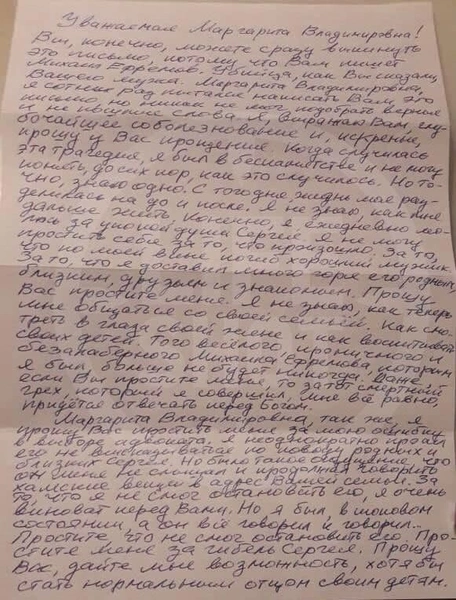 Уважаемая Маргарита Владимировна!
Вы, конечно, можете сразу выкинуть
это письмо, потому что Вам пишет
Михаил Ефремов. Убийца, как Вы сказали,
Вашего мужа. Маргарита Владимировна,
я сотни раз пытался написать Вам это
письмо но никак не мог подобрать верные
не пустые слова. Я, выражаю Вам, глу-
бочайшее соболезнование и, искренне,
прошу у Вас прощение. Когда случилась
эта трагедия, я был в беспамятстве и не могу
понять, до сих пор, как это случилось. Но то-
чно, знаю одно. С того дня жизнь моя раз-
делилась на до и после. Я не знаю, как мне
дальше жить. Конечно, я ежедневно мо-
люсь за упокой души Сергея. Я не могу
простить себя за то, что произошло. За то,
что по моей вине погиб хороший мужик.
За то, что я доставил много горя его родным,
близким, друзьям и знакомым. Прошу
Вас простите меня. Я не знаю, как теперь
мне общаться со своей семьёй. Как смо-
треть в глаза своей жене и как воспитывать
своих детей. Того весёлого, ироничного и
безалаберного Михаила Ефремова, которым
я был, больше не будет никогда. Даже,
если Вы простите меня, то за тот смертный
грех, который я совершил, мне всё равно,
придётся отвечать перед Богом.
Маргарита Владимировна, так же, я
прошу Вас простить меня за мою ошибку
в выборе адвоката. Я неоднократно просил
его не высказываться по поводу родных и
близких Сергея. Но было такое ощущение, что
он меня не слышит и продолжал говорить
хамские вещи в адрес Вашей семьи. За
то, что я не смог остановить его, я очень
виноват перед Вами. Но я был в шоковом
состоянии, а он всё говорил и говорил..
Простите, что не смог остановить его. Про-
стите меня за гибель Сергея. Прошу
Вас, дайте мне возможность, хотя бы
стать нормальным отцом своим детям.